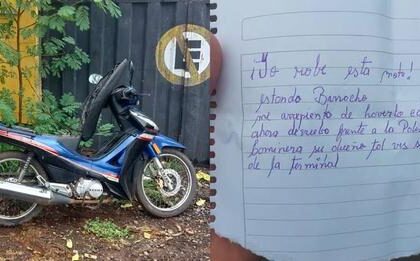 E
¡Yo robe esta moto!
estando Borracho
me arepiento de hoverlo ec
ahora devuelvo frente a la Poli
Caminera su dueño tal vis s
de la terminal